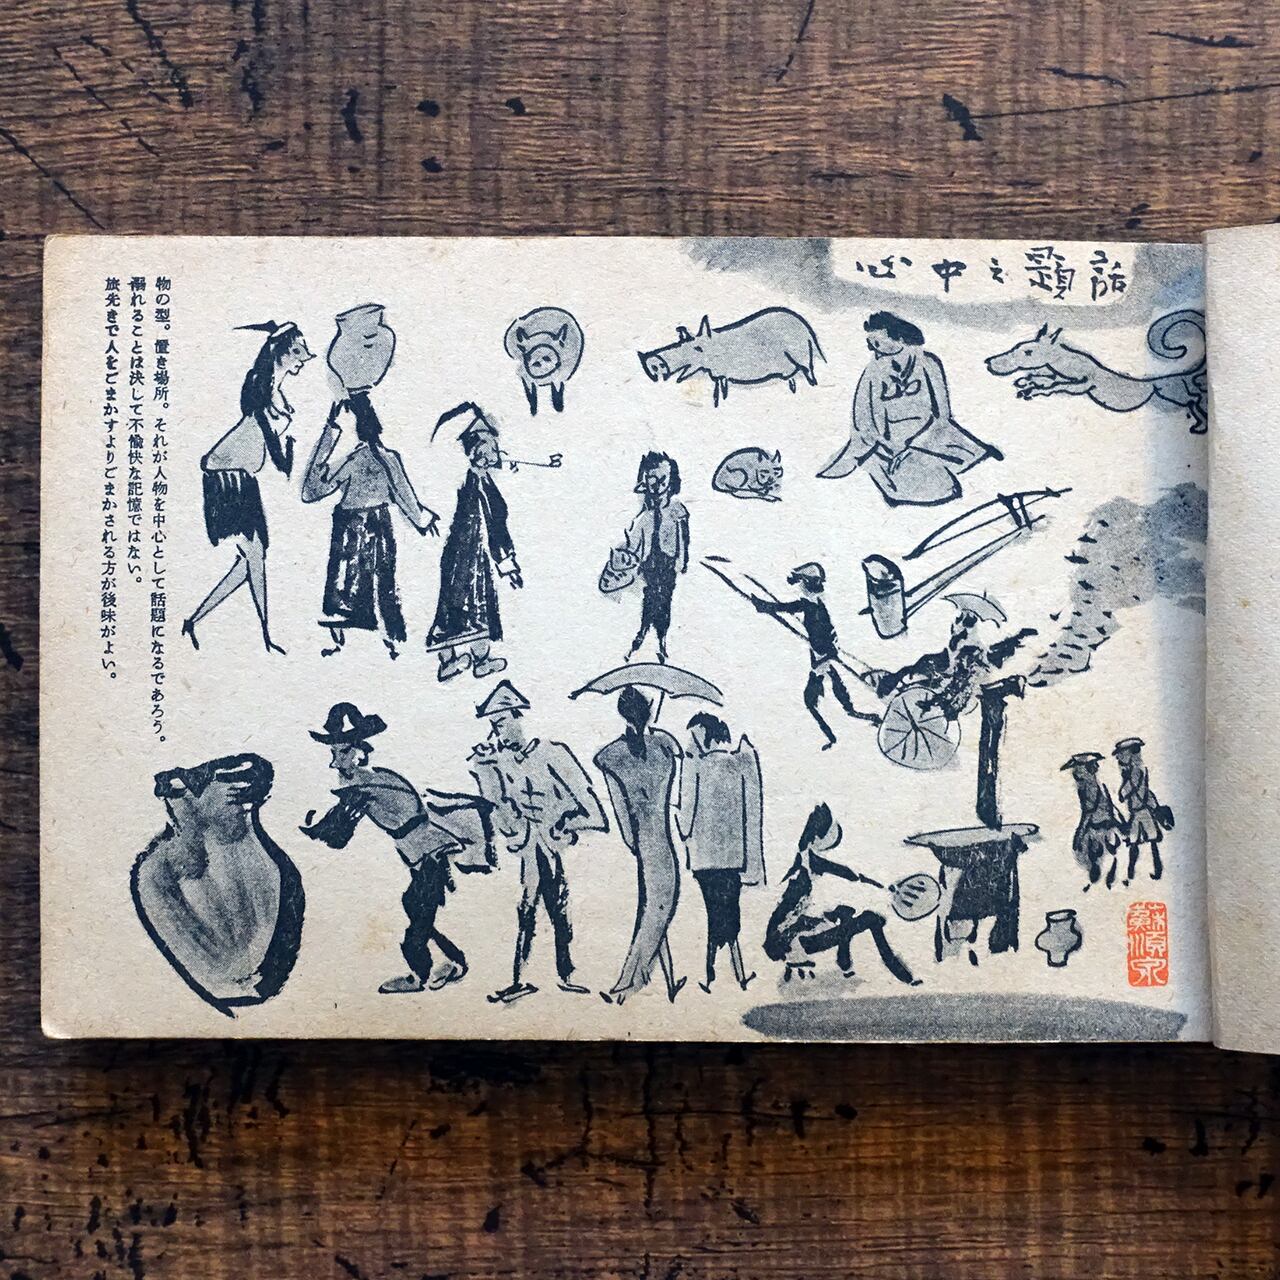 話題之中心
物の型。置き場所。それが人物を中心として話題になるであろう。
溺れることは決して不愉快な記憶ではない。
旅先きで人をごまかすよりごまかされる方が後味がよい。